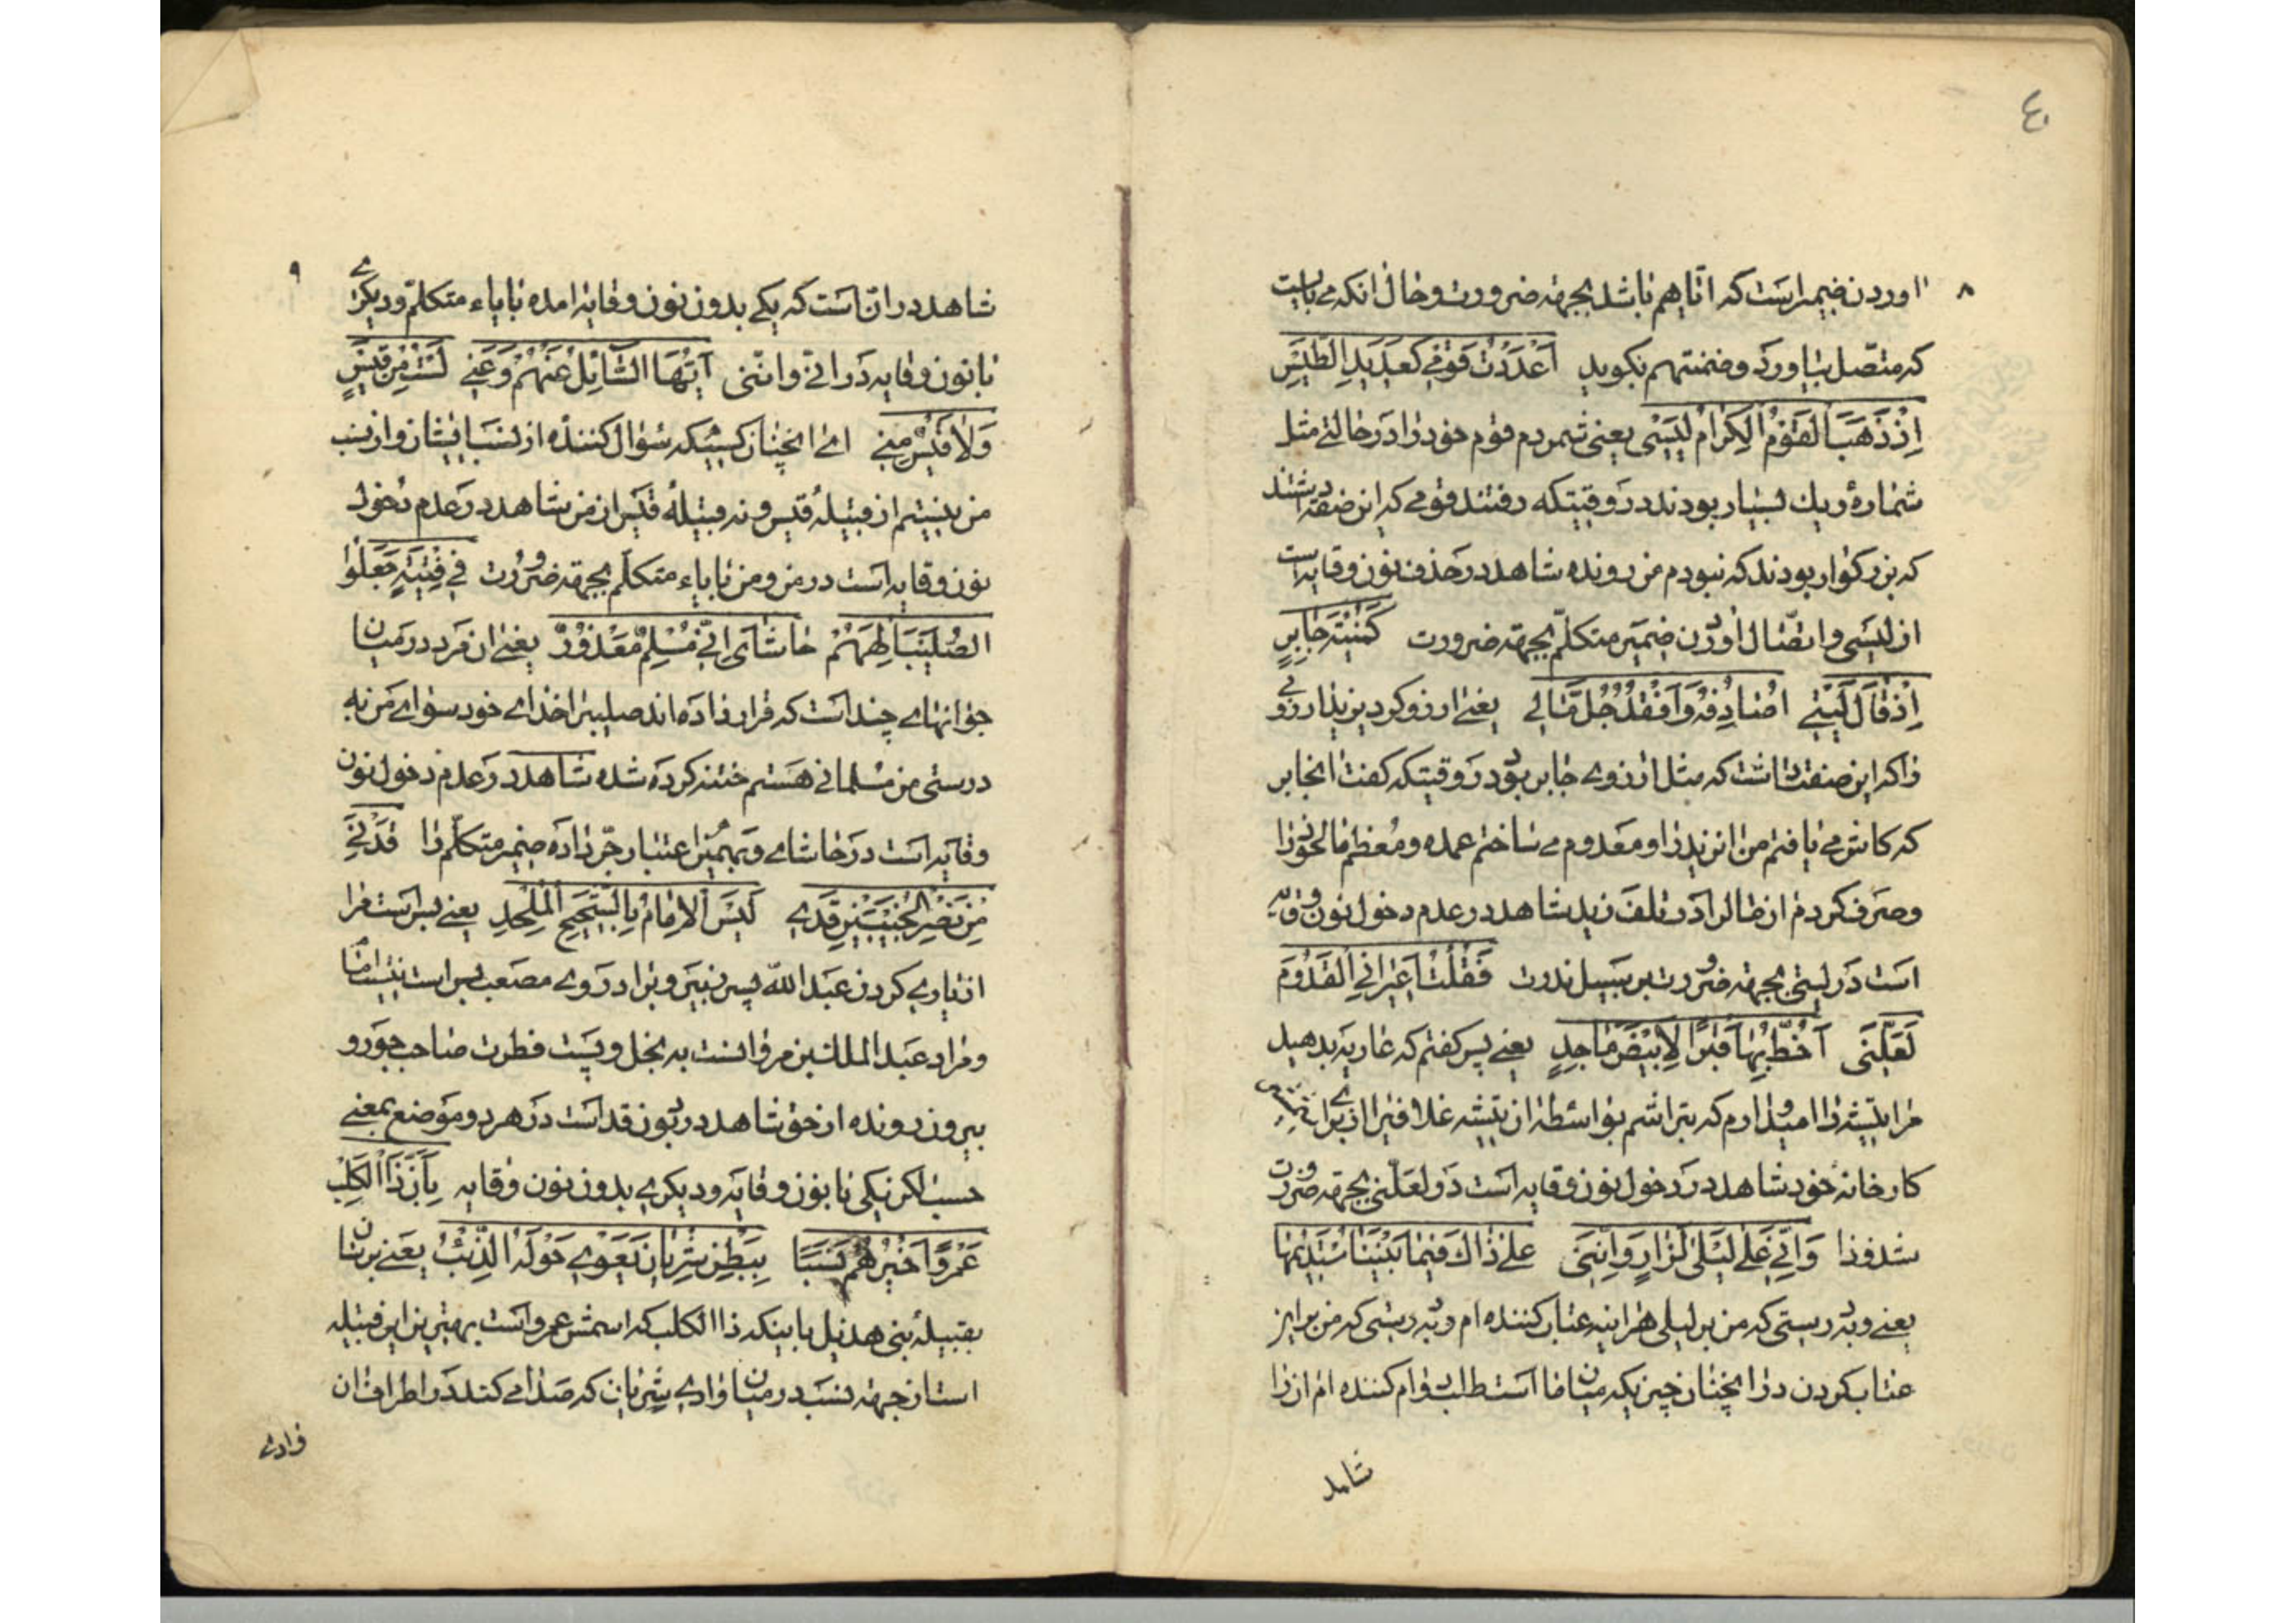 ٤
٨
اوردن ضمیر است که اتاهم باشد بجهة ضرورت و حال انکه می بایست
که متصل بیاورد و ضمنتهم بکوید اَعْدَدْتُ قَوْمی کَعَدیدِ الطَّیْسِ
اِذْ ذَهَبَ الْقَوْمُ الْکِرامُ لَیْسی یعنی شمردم قوم خود را در حالتی مثل
شمارهٔ ریك بسیار بودند در وقتیکه رفتند قومی که این صفة داشتند
که بزرکوار بودند که نبودم من رونده شاهد در حذف نون وقایه است
از لیسی و اتصال اوردن ضمیر متکلم بجهة ضرورت کَمُنْیَةِ جابِرٍ
اِذْ قالَ لَیْتی اُصادِفُهُ وَ اَفْقِدُ جُلَّ مالی یعنی ارزو کرد زید ارزوئی
را که این صفت داشت که مثل ارزوی جابر بود در وقتیکه کفت انجابر
که کاش می یافتم من زید را و معدوم می ساختم عمده و معظم مال خود را
و صرف کردم ان مال را در تلف زید شاهد در عدم دخول نون وقایه
است در لیتی بجهة ضرورت بر سبیل ندرت فَقُلْتُ اَعیرانِی الْقَدُومَ
لَعَلَّنی اَخُطُّ بِها قَبْراً لِاَبْیَضَ ماجِدٍ یعنی پس کفتم که عاریه بدهید
مرا تیشه را امیدوارم که بتراشم بواسطهٔ ان تیشه غلافی را از برای
کارخانه خود شاهد در دخول نون وقایه است در لعلنی بجهة ضرورت
شذوذا وَ اِنّی عَلی لَیْلی لَزارٍ وَ اِنَّنی عَلی ذاكَ فیما بَیْنَنا مُسْتَدیمُها
یعنی و بدرستی که من بر لیلی هراینه عتاب کننده ام و بدرستی که من بر این
عتاب کردن در انچنان چیزیکه میان ما است طلب دوام کننده ام انرا
شاهد
٩
شاهد در ان است که یکی بدون نون وقایه امده با یاء متکلم و دیکری
با نون وقایه در انی و اننی اَیُّهَا السّائِلُ عَنْهُمْ وَ عَنی لَسْتُ مِنْ قَیْسٍ
وَلا قَیْسُ مِنی ای انچنان کسیکه سؤال کننده از نسب ایشان و از نسب
من نیستم از قبیله قیس و نه قبیلهٔ قیس از من شاهد در عدم دخول
نون وقایه است در من و عن با یاء متکلم بجهة ضرورت فی فِتْیَةٍ جَعَلُوا
الصَّلیبَ اِلهَهُمْ حاشایَ اِنّی مُسْلِمٌ مَعْذُورٌ یعنی ان فرد در میان
جوانهای چند است که قرار داده اند صلیب را خدای خود سوای من به
درستی من مسلمانی هستم ختنه کرده شده شاهد در عدم دخول نون
وقایه است در حاشای و بهمین اعتبار جر داده ضمیر متکلم را قَدْنی
مِنْ نَصْرِ الْخُبَیْبَیْنِ قَدی لَیْسَ الْاِمامُ بِالشَّحیحِ الْمُلْحِدِ یعنی بس است مرا
از یاری کردن عبد الله پسر زبیر و برادر وی مصعب بس است نیست امام
و مراد عبد الملك بن مروانست به بخل و پست فطرت صاحب جور و
بیرون رونده از حق شاهد در بودن قد است در هر دو موضع بمعنی
حسب لکن یکی با نون وقایه و دیکری بدون نون وقایه بِاَنَّ ذَا الْکَلْبِ
عَمْرواً خَیْرُهُمْ نَسَباً بِبَطْنِ شِرْیانَ یَعْوی حَوْلَهُ الذِّئْبُ یعنی برسان
بقبیلهٔ بنی هذیل باینکه ذا الکلب که اسمش عمرو است بهترین این قبیله
است از جهة نسب در میان وادی شریان که صدا می کند در اطراف ان
وادی